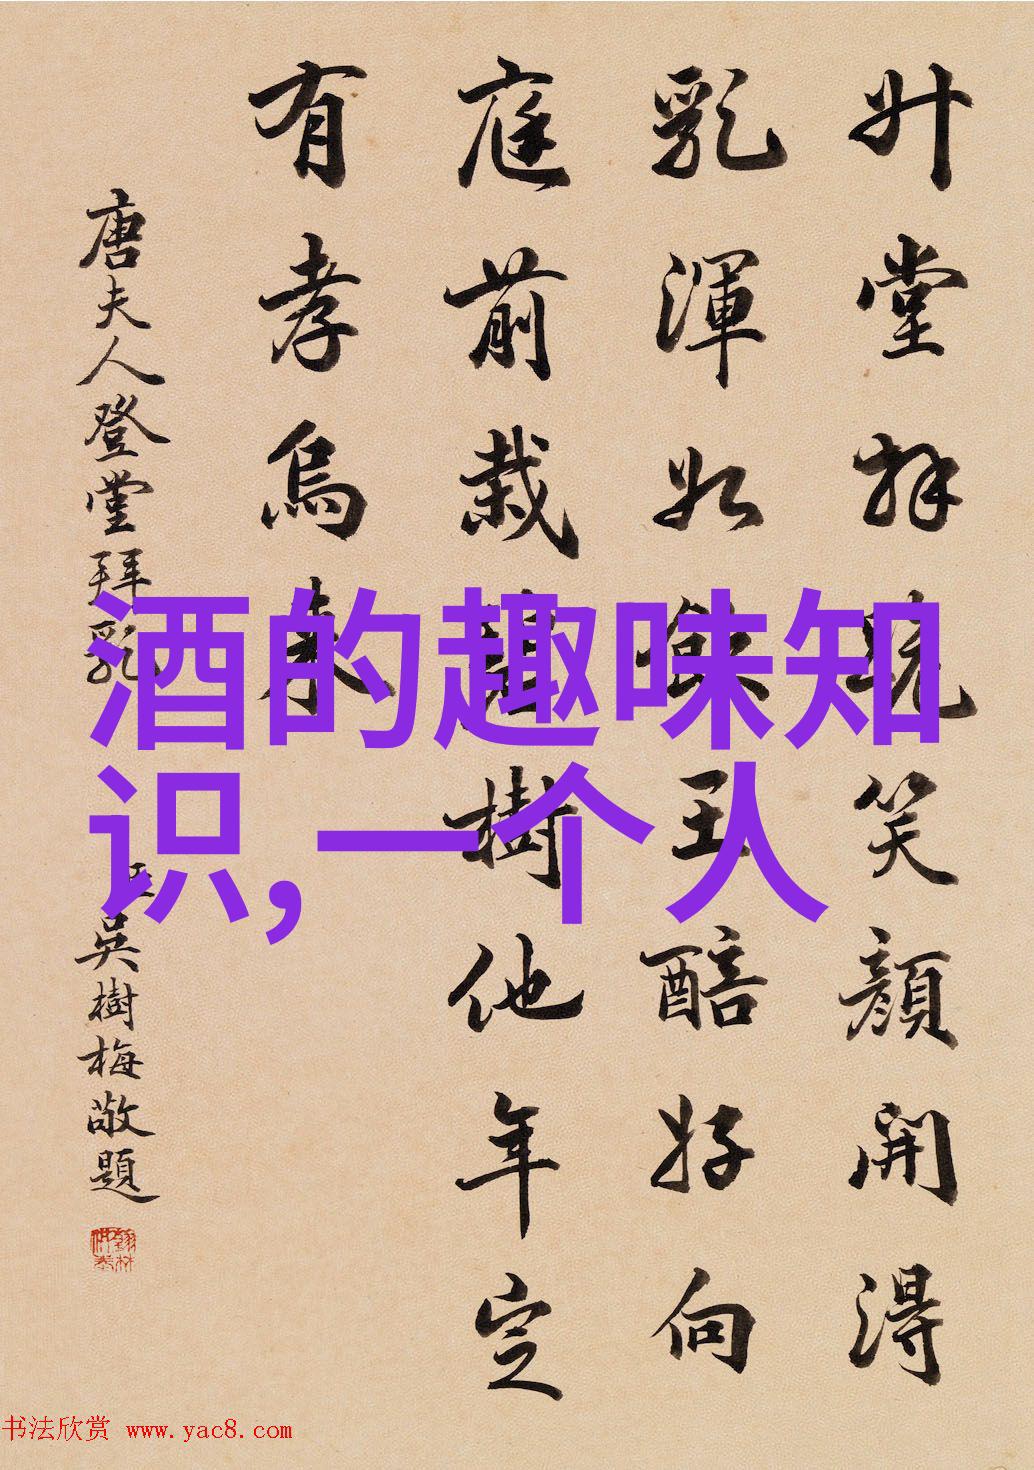 升堂拜笑顏開得
乳渾如飲玉醅好向
庭前栽樹他年定
有孝烏來
唐夫人登堂拜乳
臣吳樹梅敬題
酒的趣味知
识,一个人
书法欣赏 www.yac8.com